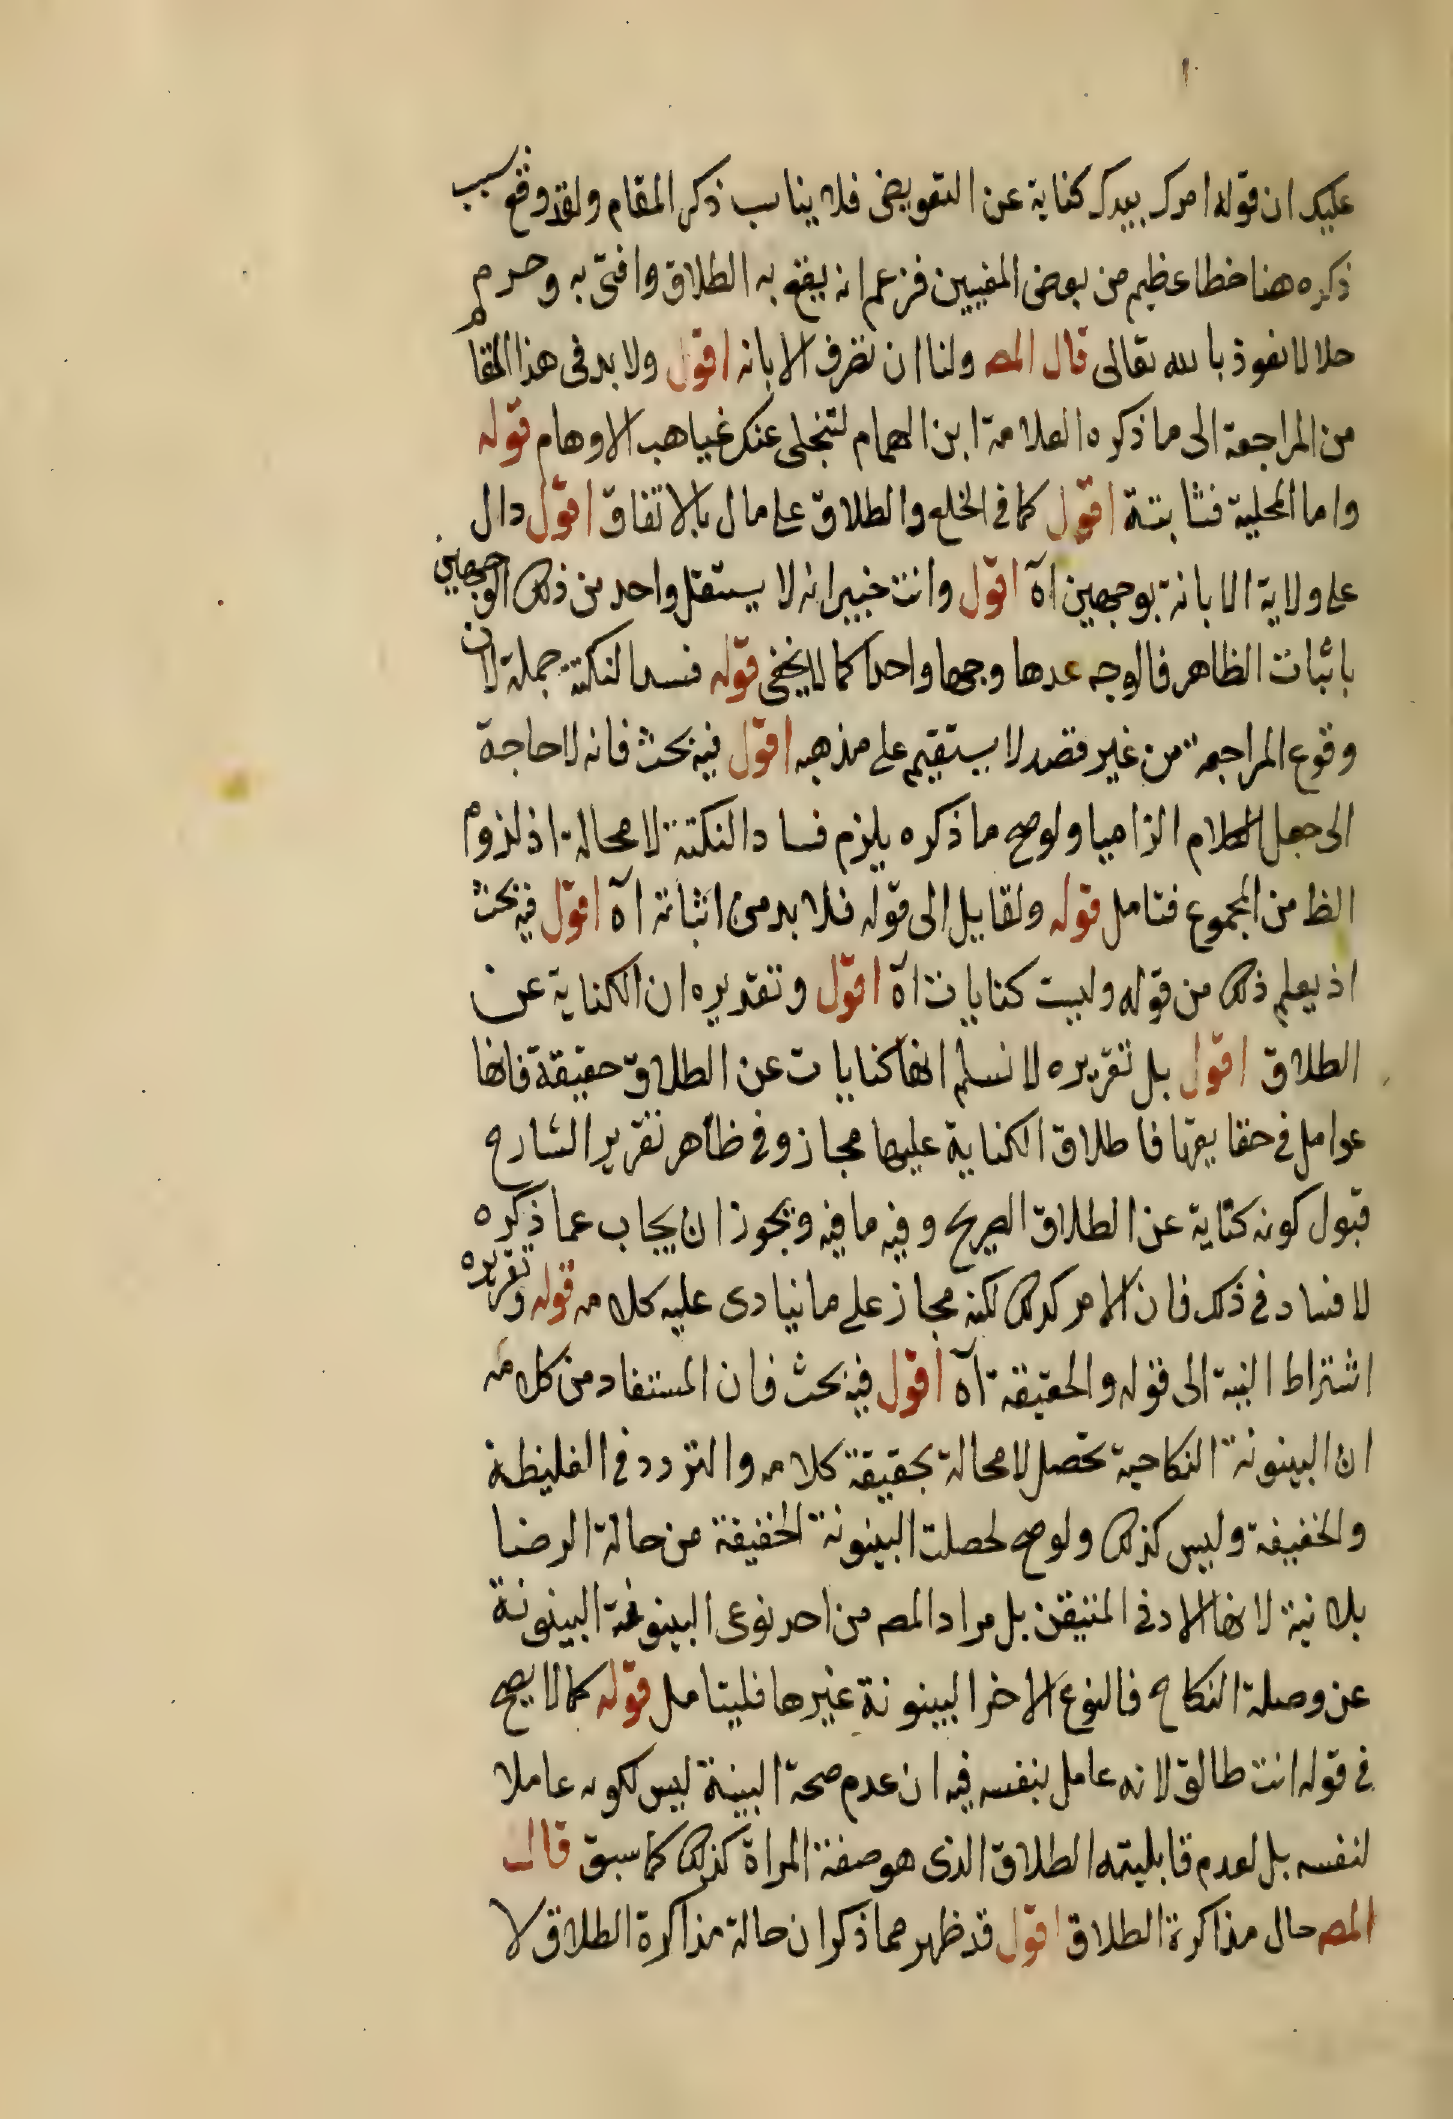 عليك ان قوله امرك بيدك كناية عن التفويض فلا يناسب ذكر المقام ولقد وقع سبب
ذكره هنا خطا عظيم من بعض المفتيين فزعم انه يقع به الطلاق وافتى به وحرم
حلالا نعوذ بالله تعالى قال المص ولنا ان تصرف الابانه اقول ولا بد فى هذا المقام
من المراجعة الى ما ذكره العلامة ابن الهمام لتنجلى عنك غياهب الاوهام قوله
واما المحلية فثابتة اقول كما فى الخلع والطلاق على مال بالاتفاق اقول دال
على ولاية الابانة بوجهين آه اقول وانت خبير انه لا يستقل واحد من ذلك الوجهين
باثبات الظاهر فالوجه عدها وجها واحدا كما لا يخفى قوله فسد النكتة جملة لان
وقوع المراجعة من غير قصد لا يستقيم على مذهبه اقول فيه بحث فانه لا حاجة
الى جعل الكلام الزاميا ولو صح ما ذكره يلزم فساد النكتة لا محالة اذ لزوم
الظ من المجموع فتامل قوله ولقايل الى قوله فلا بد من اثباته آه اقول فيه بحث
اذ يعلم ذلك من قوله وليست كنايات آه اقول وتقديره ان الكناية عن
الطلاق اقول بل تقريره لا نسلم انها كنايات عن الطلاق حقيقة فانها
عوامل فى حقايقها فاطلاق الكناية عليها مجاز وفى ظاهر تقرير الشارح
قبول كونه كناية عن الطلاق الصريح وفيه ما فيه ويجوز ان يجاب عما ذكره
لا فساد فى ذلك فان الامر كذلك لكنه مجاز على ما ينادى عليه كلامه قوله وتقريره
اشتراط النية الى قوله والحقيقة آه اقول فيه بحث فان المستفاد من كلامه
ان البينونة النكاحية تحصل لا محالة بحقيقة كلامه والتردد فى الغليظة
والخفيفة وليس كذلك ولو صح لحصلت البينونة الخفيفة من حالة الرضا
بلا نية لانها الادنى المتيقن بل مراد المص من احد نوعى البينونة البينونة
عن وصلة النكاح فالنوع الاخر البينونة عن غيرها فليتامل قوله كما لا يصح
فى قوله انت طالق لانه عامل بنفسه فيه ان عدم صحة البينة ليس لكونه عاملا
لنفسه بل لعدم قابليته الطلاق الذى هو صفة المراة كذلك كما سبق قال
المص حال مذاكرة الطلاق اقول قد ظهر مما ذكر ان حالة مذاكرة الطلاق لا